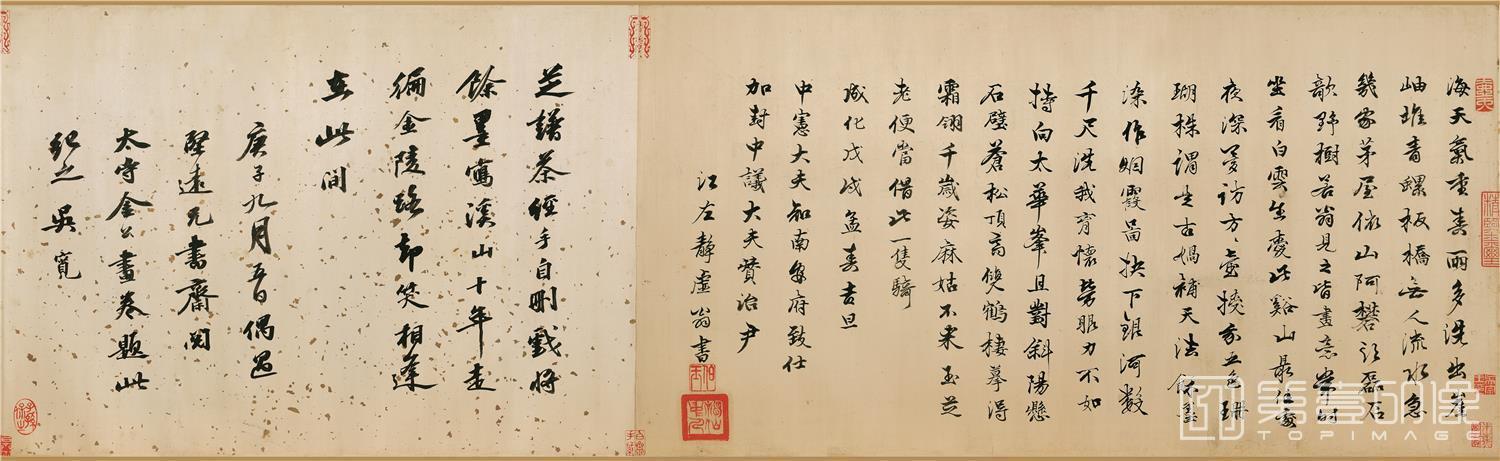 海天氣重春雨多洗出崖
岫堆青螺板橋無人流水急
幾家茅屋依山阿礬頭磊石
野樹若翁見之皆畫意常時
坐看白雲生處此谿山最佳
夜深夢訪方方壺換五色珊
瑚株謂生古媧補天法
染作烟霞啚抉下銀河數
千尺洗我胷懷勞眼力不如
持向太華峯且對斜陽懸
石壁蒼松頂高僊鶴棲摹得
霜翎千歲姿麻姑不來玉芝
老便當借此一隻騎
成化戊戌孟春吉旦
中憲大夫知南安府致仕
加封中議大夫贊治尹
江左靜虛翁書
芝譜茶經手自刪戲將
餘墨寫溪山十年走
徧金陵路却笑相逢
在此間
庚子九月五日偶過
堅遠兄書齋閱
太守金公畫卷題此
紀之 吳寬
第壹印像
TOPIMAGE